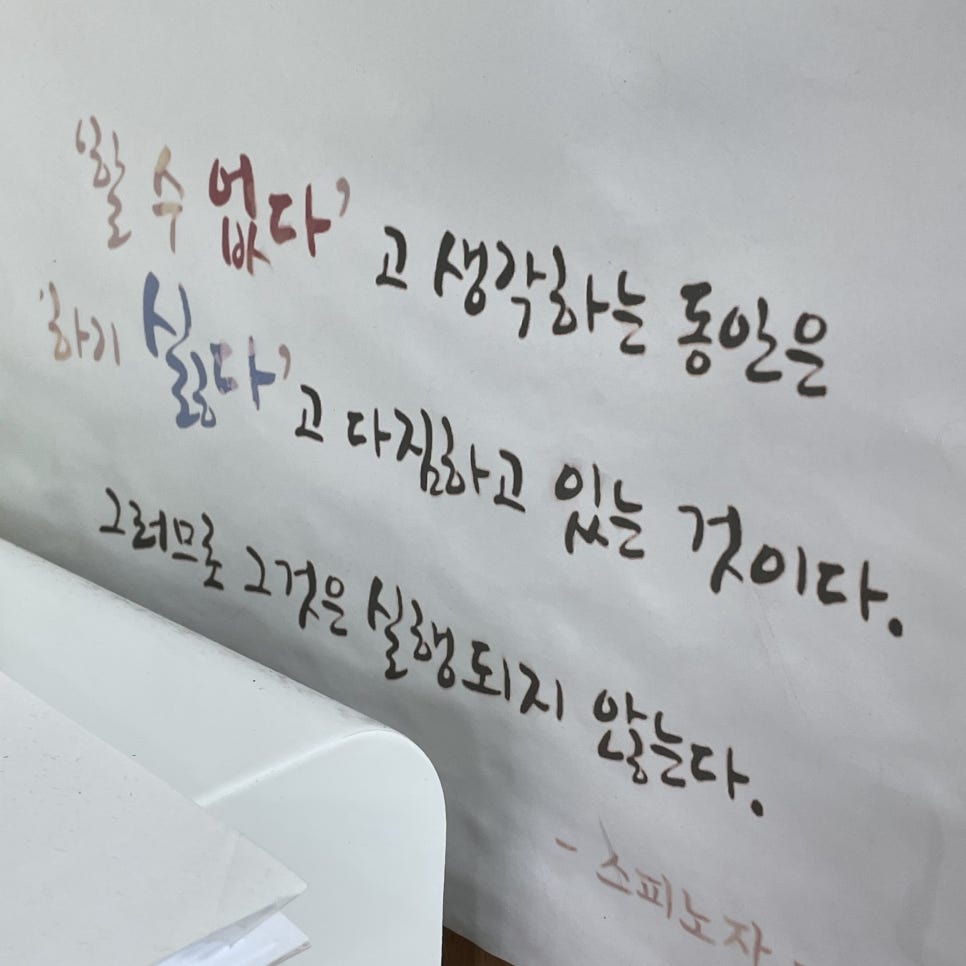 '할 수 없다'고 생각하는 동안은
'하기 싫다'고 다짐하고 있는 것이다.
그러므로 그것은 실행되지 않는다.
- 스피노자 -